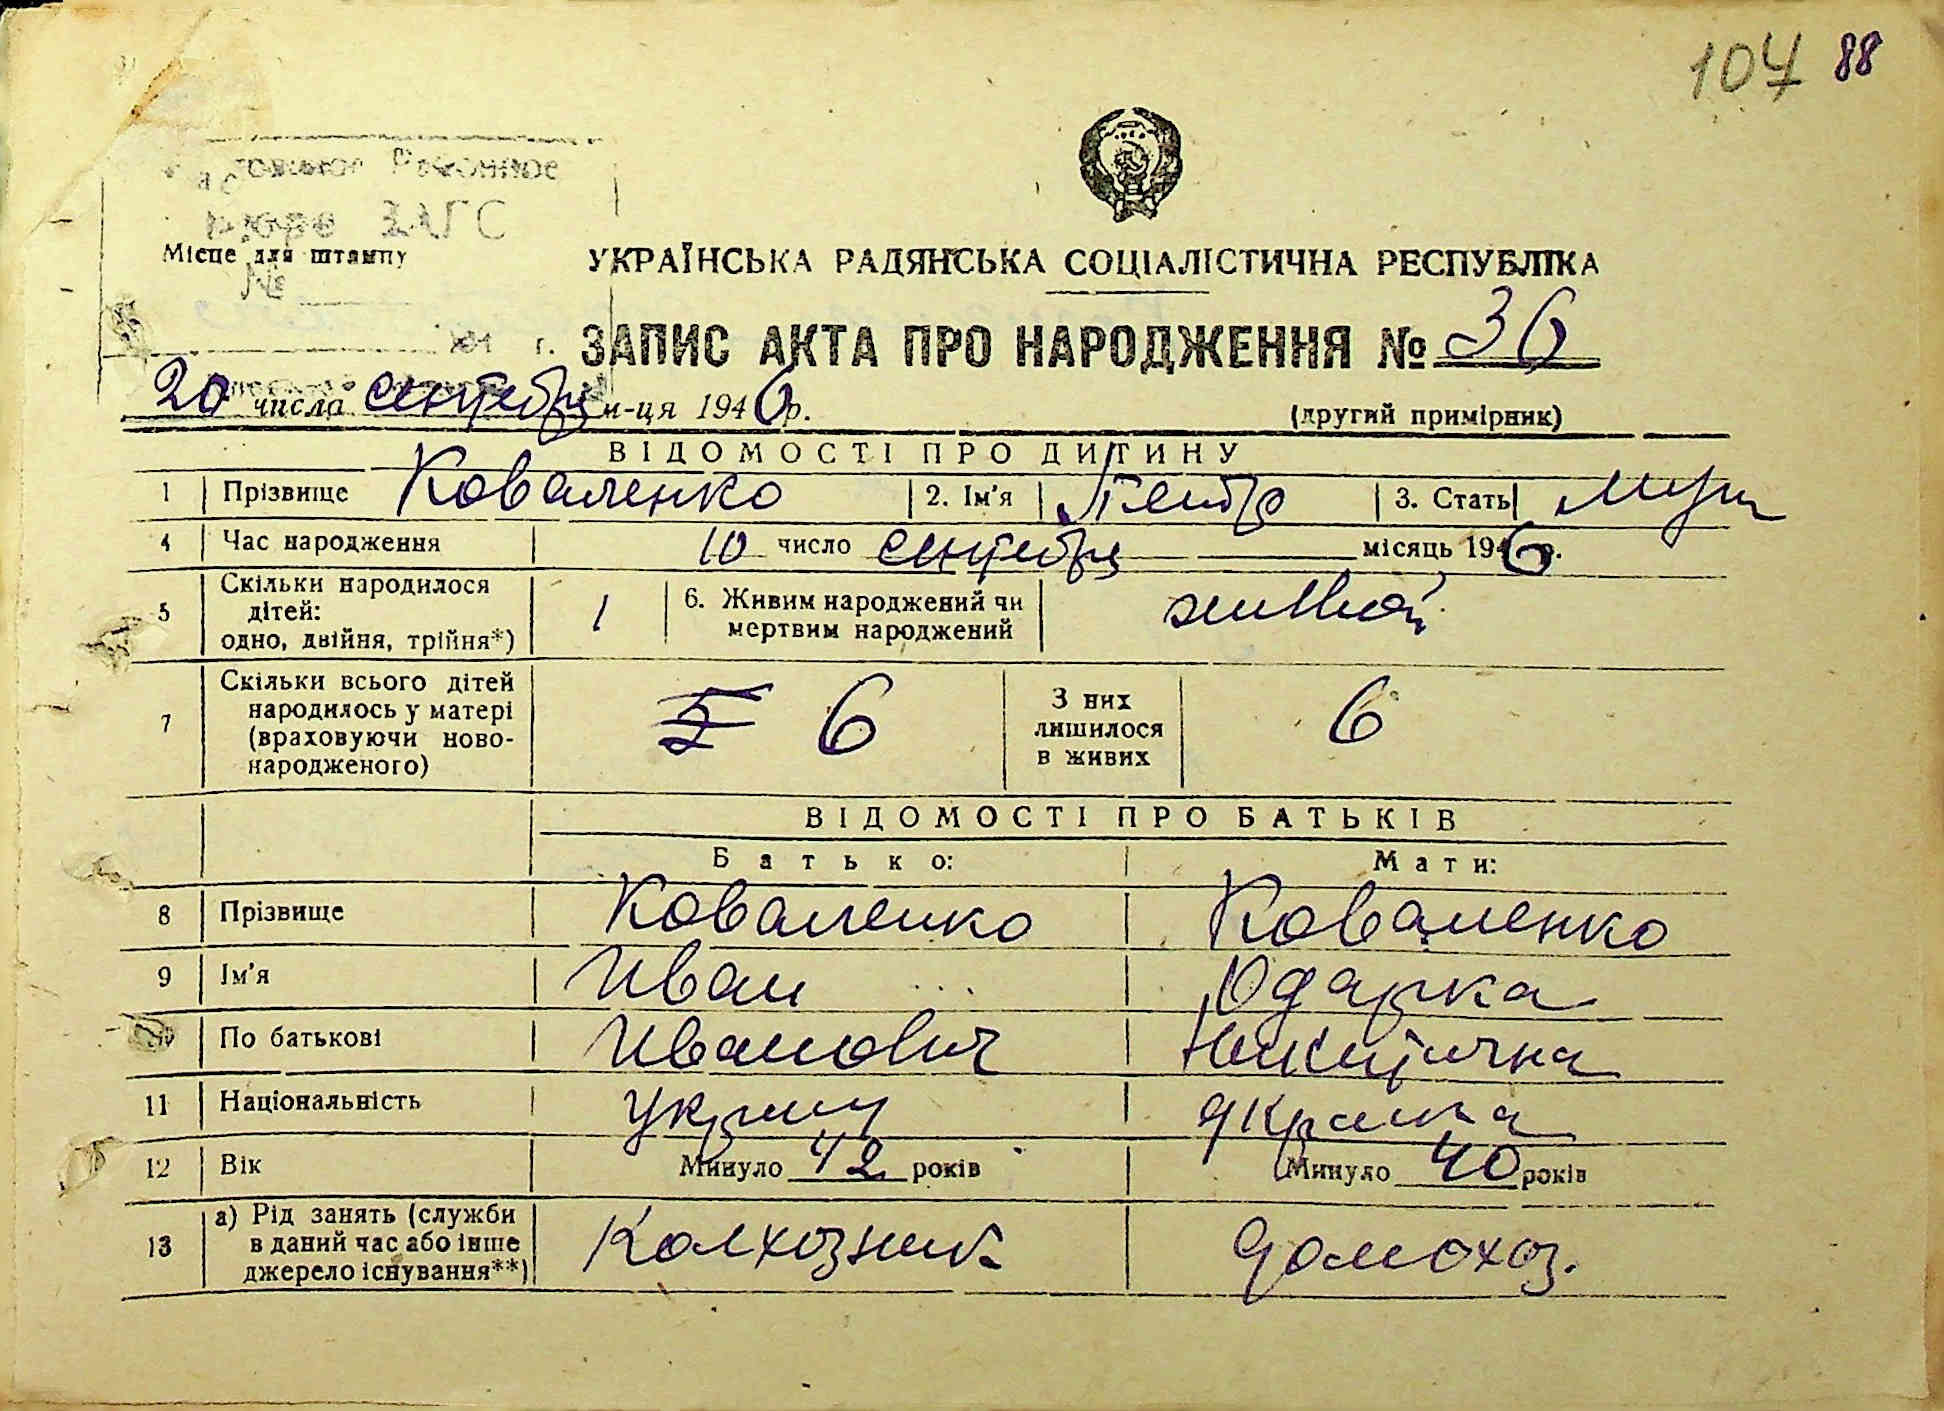 107 88
Районное
бюро ЗАГС
Місце для штампу
№
УКРАЇНСЬКА РАДЯНСЬКА СОЦІАЛІСТИЧНА РЕСПУБЛІКА
ЗАПИС АКТА ПРО НАРОДЖЕННЯ № 36
20 числа сентебря м-ця 1946 р.
(другий примірник)
ВІДОМОСТІ ПРО ДИТИНУ
1 Прізвище Коваленко 2. Ім'я Петр 3. Стать муж
4 Час народження 10 число сентебря місяць 1946 р.
5 Скільки народилося
дітей:
одно, двійня, трійня*) 1 6. Живим народжений чи
мертвим народжений живой
7 Скільки всього дітей
народилось у матері
(враховуючи ново-
народженого) 5 6 З них
лишилося
в живих 6
ВІДОМОСТІ ПРО БАТЬКІВ
Батько: Мати:
8 Прізвище Коваленко Коваленко
9 Ім'я Иван Одарка
10 По батькові Иванович Никитична
11 Національність украин украинка
12 Вік Минуло 42 років Минуло 40 років
13 а) Рід занять (служби
в даний час або інше
джерело існування**) Колхозник домохоз.